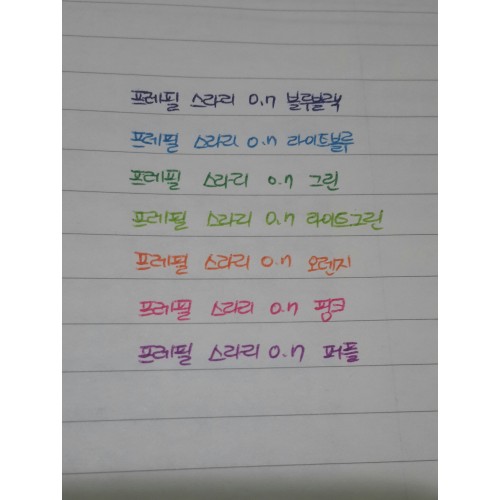 프레필 스라리 0.7 블루블랙
프레필 스라리 0.7 라이트블루
프레필 스라리 0.7 그린
프레필 스라리 0.7 라이트그린
프레필 스라리 0.7 오렌지
프레필 스라리 0.7 핑크
프레필 스라리 0.7 퍼플